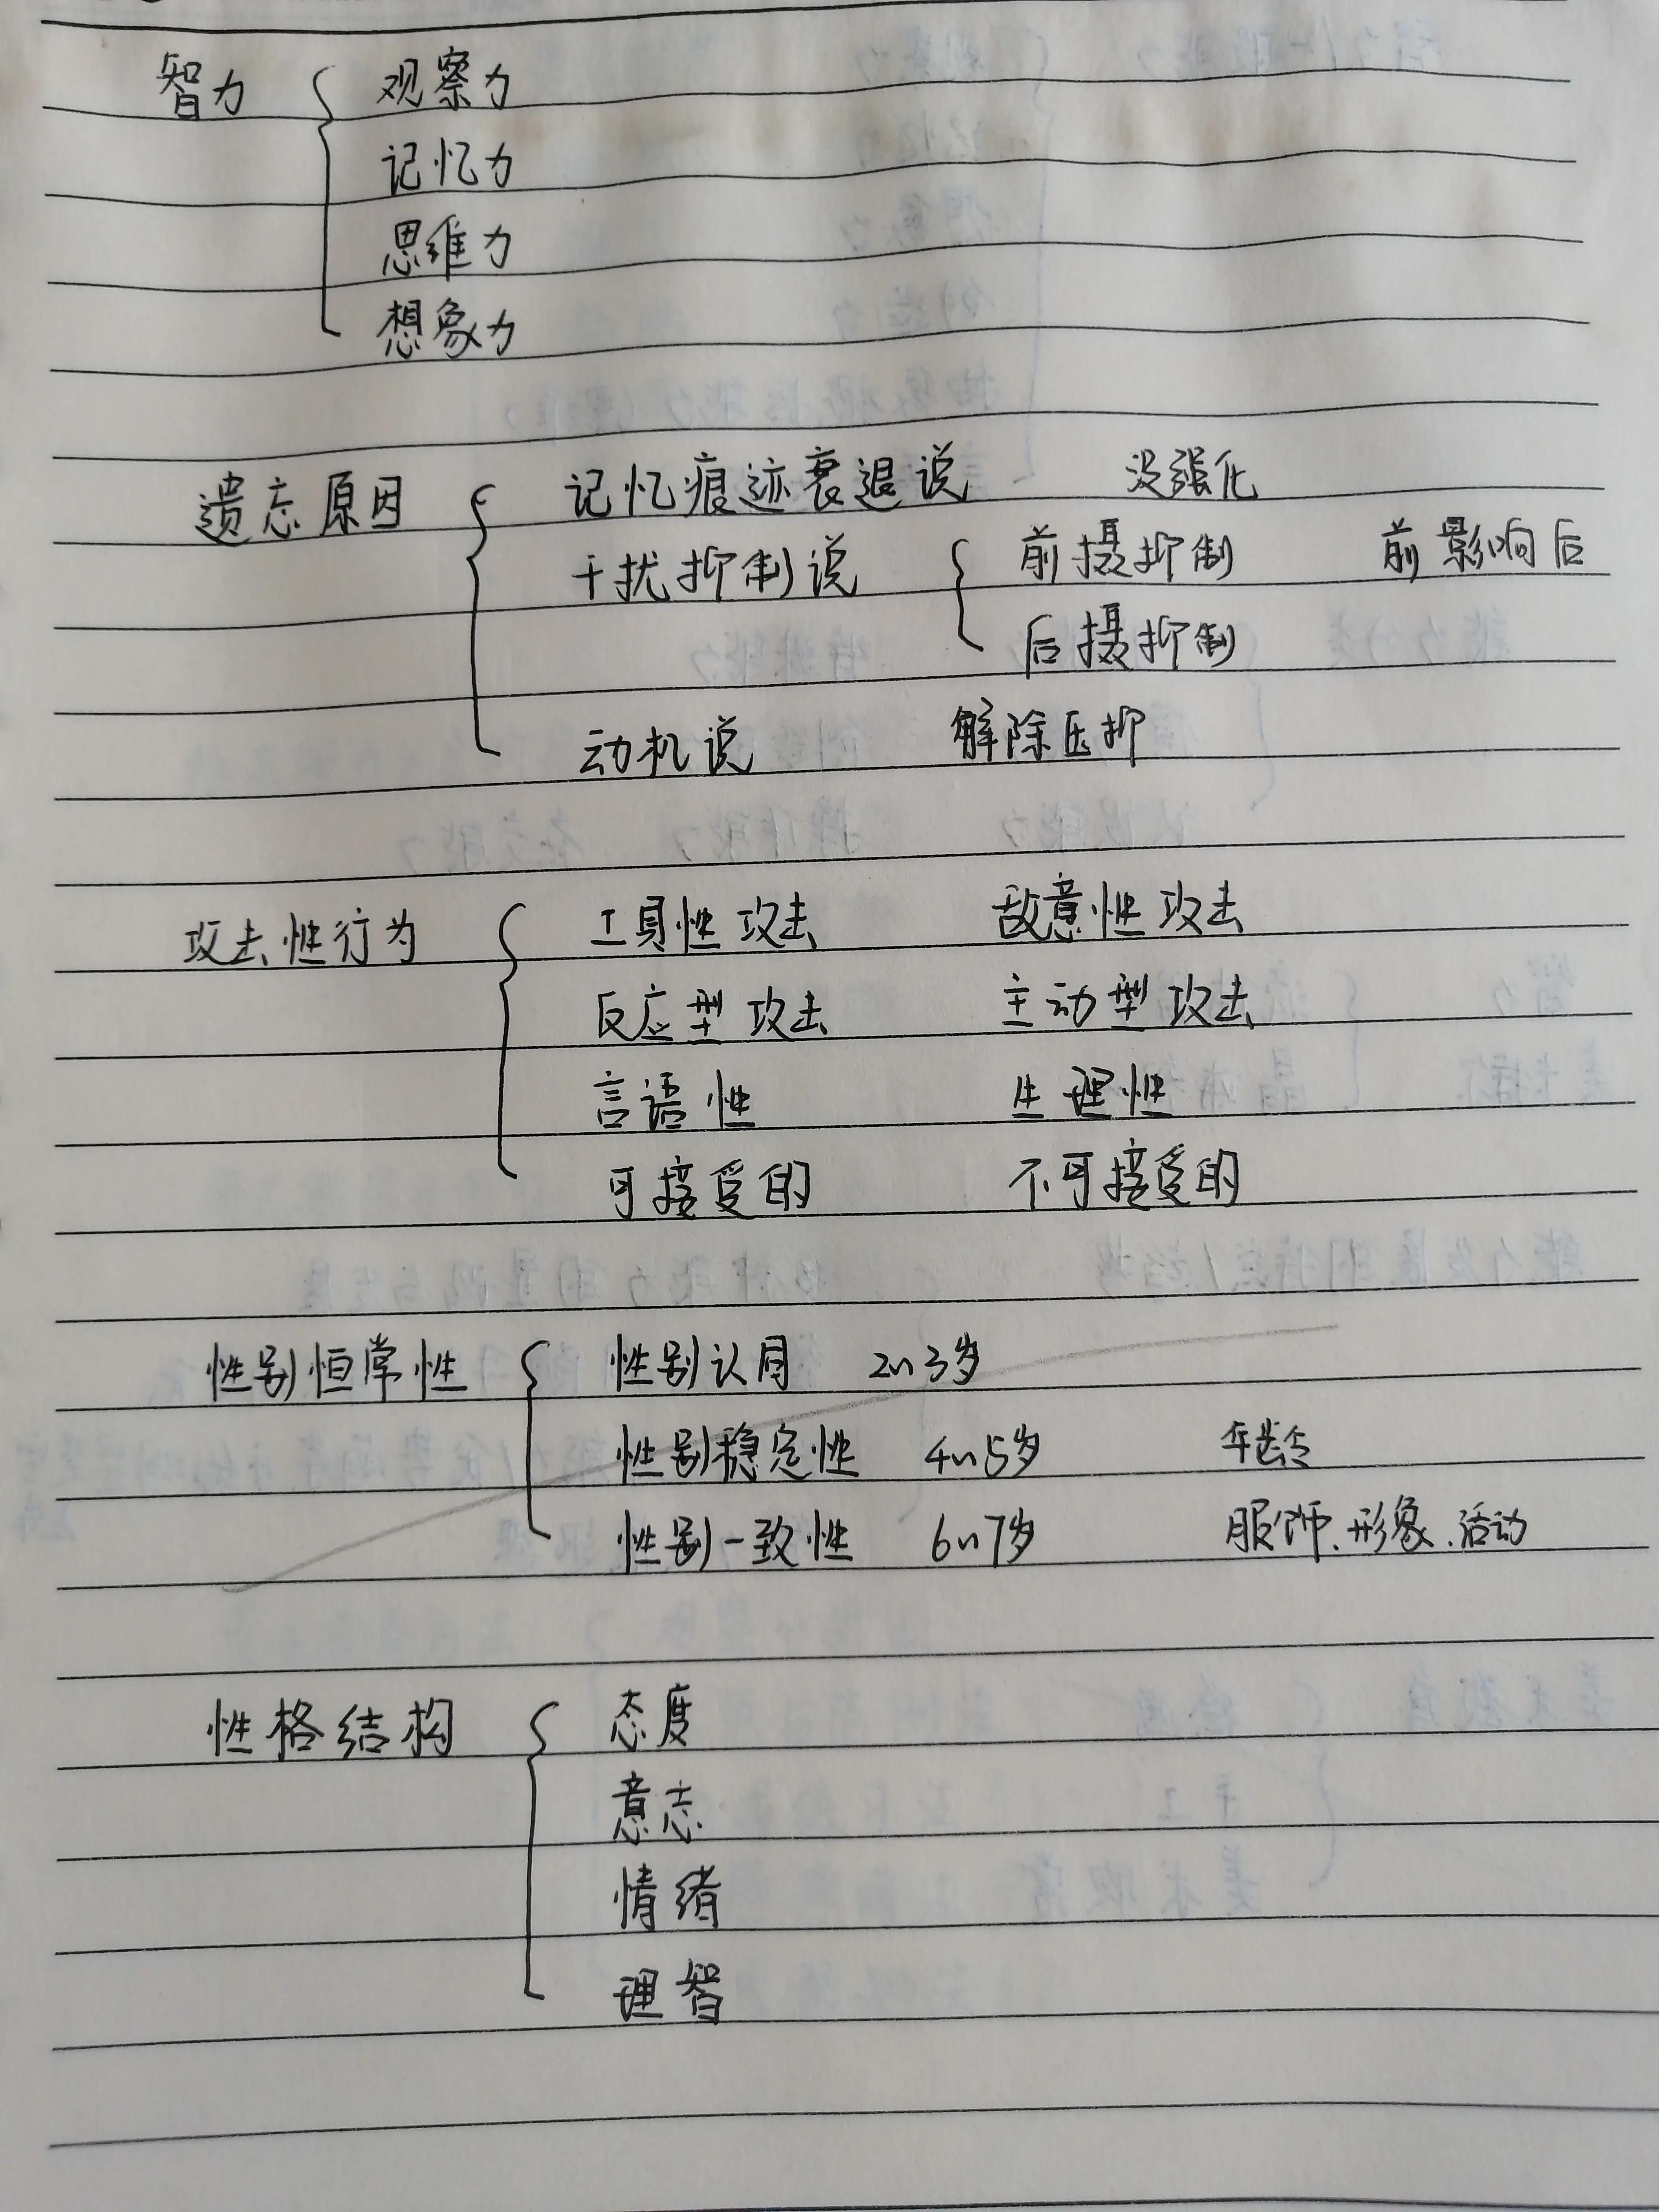 智力 观察力
记忆力
思维力
想象力
遗忘原因 记忆痕迹衰退说 没强化
干扰抑制说 前摄抑制 前影响后
后摄抑制
动机说 解除压抑
攻击性行为 工具性攻击 敌意性攻击
反应型攻击 主动型攻击
言语性 生理性
可接受的 不可接受的
性别恒常性 性别认同 2~3岁
性别稳定性 4~5岁 年龄
性别一致性 6~7岁 服饰、形象、活动
性格结构 态度
意志
情绪
理智